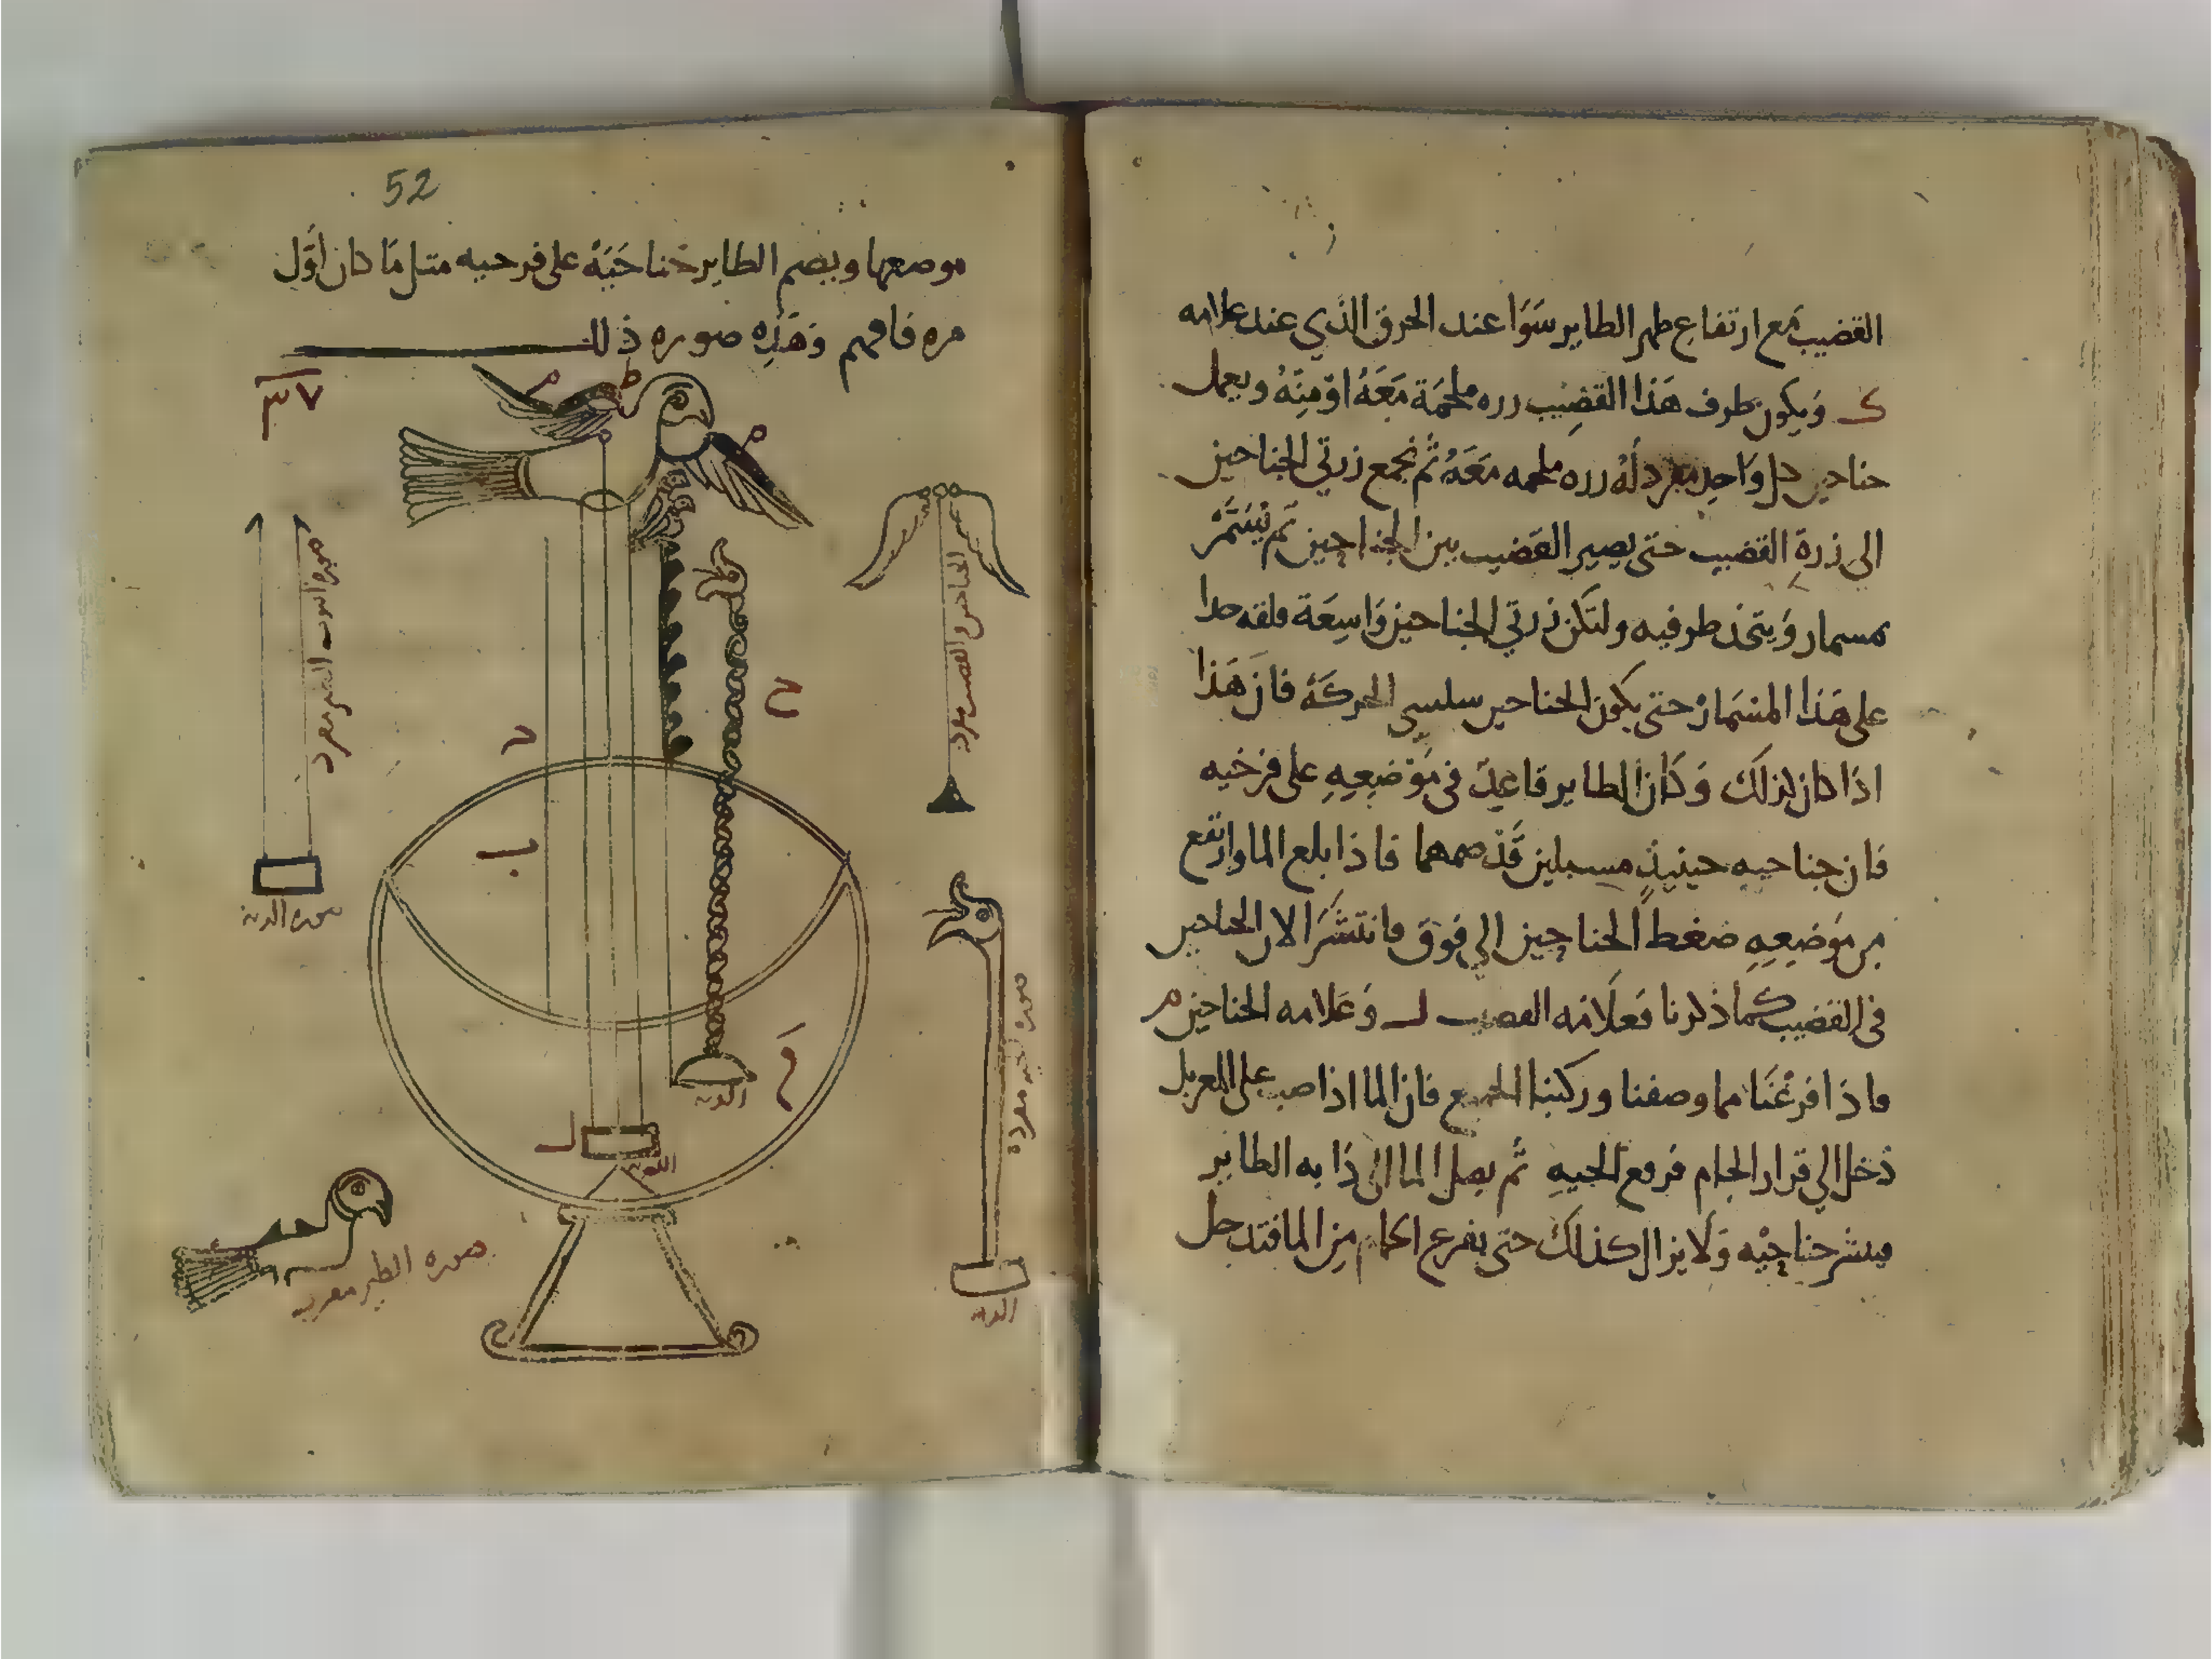 القضيب مع ارتفاع ظهر الطاير سَوَا عند الخرق الذي عند علامه
ك وَيكون طرف هَذا القضِيب زره ملحمَة مَعَهُ اوْ مِنْهُ ويعمل
جناحين كل وَاحِد مفرد لهُ زره ملحمه مَعَهُ ثُم نجمع زرتي الجناحين
الى زرةِ القضيب حتى يصير القضيب بين الجناحين ثم يُسَمَّرْ
بمسمار وَيتخذ طرفيه ولتكن زرتي الجناحين وَاسِعَة قلقه جدا
على هَذا المسْمَار حتى يكون الجناحين سلسي الحركَة فان هَذا
اذا كان كذلك وَكان الطاير قاعِد في مَوْضِعِهِ على فرخيه
فان جناحيه حينيذٍ مسبلين قَدْ ضمهما فاذا بلع الما وارتفع
من مَوضِعِهِ ضغط الجناحين الي فوق فانتشرَا لان الجناحين
في القضيب كما ذكرنا فعلَامَه القضيب ل وَعَلامه الجناحين م
فاذا فرغنَا مما وصفنا وركبنا الجميع فان الما اذا صب على المغربل
دَخل الي قرار الجام فرفع الحيهِ ثُم يصل الما الى ذَابه الطاير
فينشر جناحَيْه وَلَا يزال كذلكَ حتى يفرغ الجام مِن الما فتدخل
52
موضعها ويضم الطاير جناحَيَهْ على فرخيه مثل مَا كان اوَّل
مره فافهم وَهَذِه صوره ذلك
م
ط
م
صوره انبوب
مفرد
الجناحين والقضيب مفرد
ح
ب
م
ل
صوره الحيه مفردة
صوره الطير مفرده